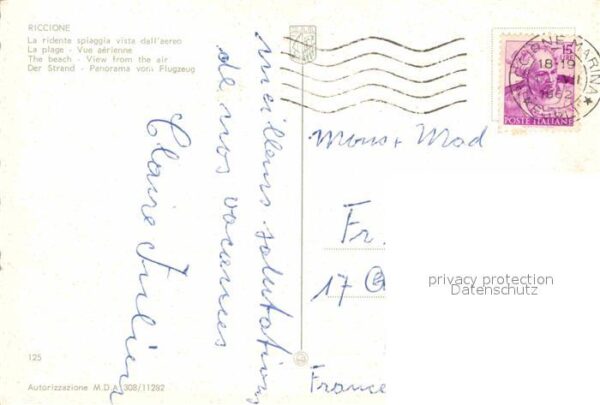 RICCIONE
La ridente spiaggia vista dall'aereo
La plage - Vue aérienne
The beach - View from the air
Der Strand - Panorama vom Flugzeug
meilleurs salutations
de nos vacances
Claire
15
RICCIONE MARINA
18-19
POSTE ITALIANE
Mons + Mad
Fr.
17
France
privacy protection
Datenschutz
125
Autorizzazione M.D.A. 308/11282